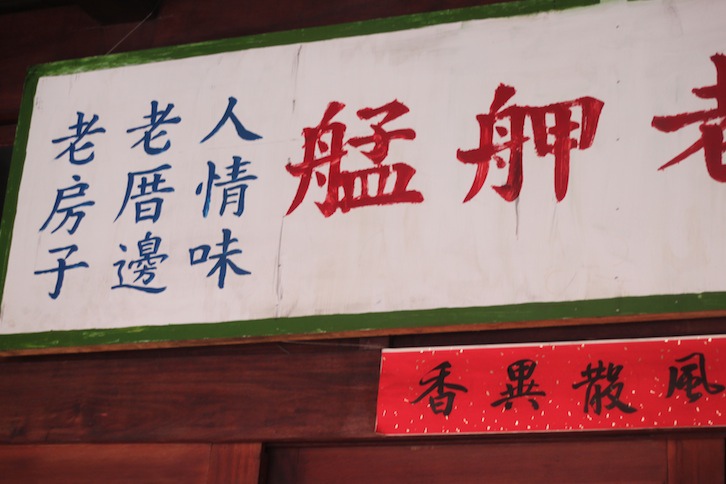 人情味
老厝邊
老房子
艋舺老
風散異香